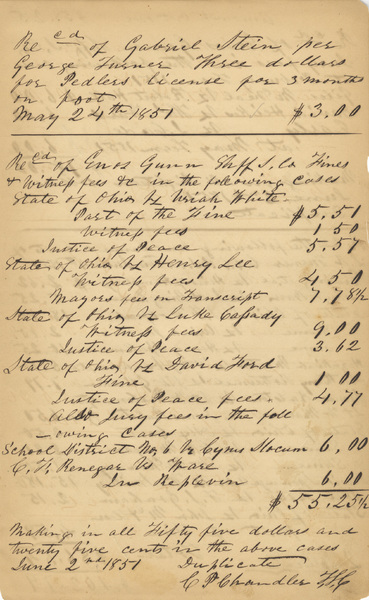 Recd of Gabriel Stein per
George Turner Three dollars
for Pedlers license for 3 months
on foot
May 24th 1851 $3.00
Recd of Enos Gunn Shff S. Co Fines
& Witness fees &c in the following cases
State of Ohio vs Uriah White
Part of the Fine $5.51
Witness fees 1 50
Justice of Peace 5.57
State of Ohio vs Henry Lee
Witness fees 4 50
Mayors fees on Transcript. 7.78½
State of Ohio vs Luke Cassady
Witness fees 9.00
Justice of Peace 3.62
State of Ohio vs David Ford
Fine 1 00
Justice of Peace fees. 4.77
Also Jury fees in the foll
-owing Cases
School District No 6 vs Cyrus Slocum 6.00
C. F. Renegar Vs Ware
In Replevin 6.00
$55.25½
Making in all Fifty five dollars and
twenty five cents in the above cases
June 2nd 1851 Duplicate
C P Chandler